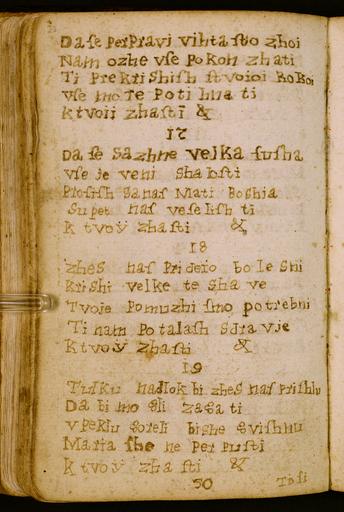 Da ſe perPravi vihta ſto zhoi
Nam ozhe vſe Pokoh zhati
Ti PrekriShiſh ſtvoioi RoKoi
vſe mo Te Poti hna ti
k tvoii zhaſti &
17
Da ſe Sazhne velka ſuſha
vſe je veni Shabſti
Proſiſh Sanaſ Mati Boshia
Supet naſ veſeliſh ti
K tvoÿ zhaſti &
18
zhes naſ Prideio boleSni
KriShi velke te Shave
Tvoje Pomuzhi ſmo potrebni
Ti nam Potalaſh Sdravje
K tvoÿ zhaſti &
19
Turku nadlok bi zhes naſ Priſhlu
Da bi mo ti
v peklu biShe
Maria ne Per Puſti
K tvoÿ zhaſti &
50